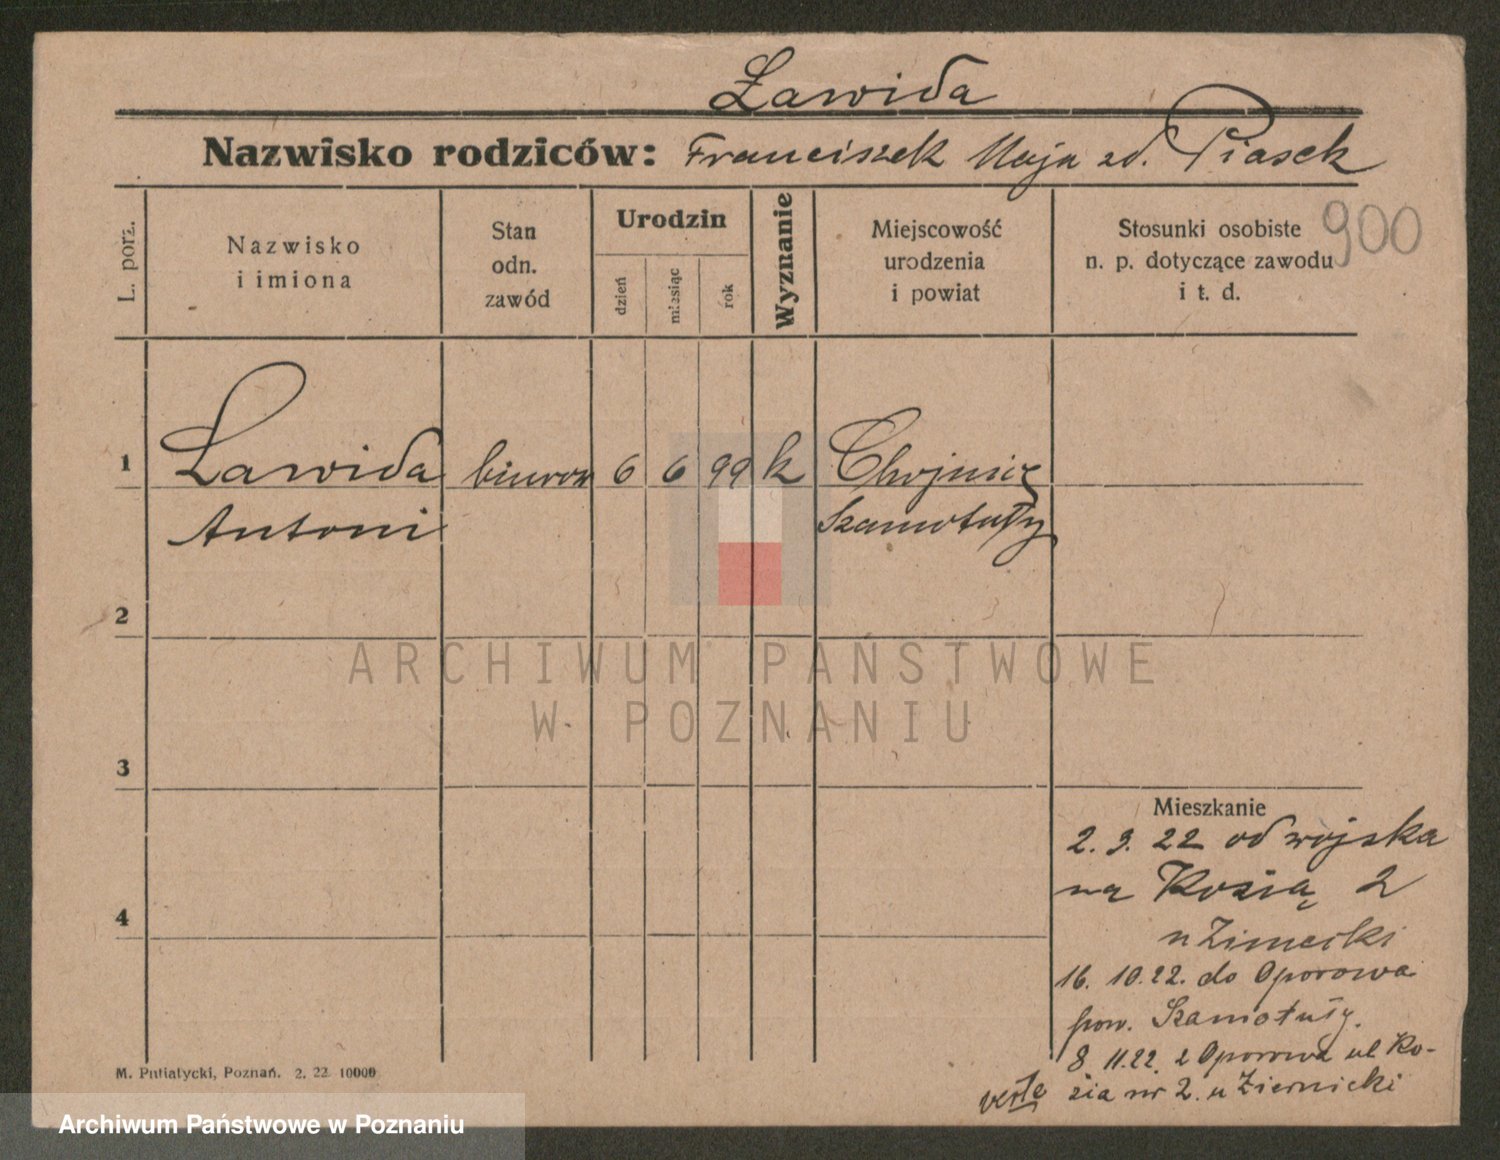 Ławida
Nazwisko rodziców: Franciszek Maja zd. Piasek
L. porz.
Nazwisko
i imiona
Stan
odn.
zawód
Urodzin
dzień
miesiąc
rok
Wyznanie
Miejscowość
urodzenia
i powiat
Stosunki osobiste
n. p. dotyczące zawodu
i t. d.
900
1
Ławida biurow 6 6 99 k
Antoni Szamotuły
2
ARCHIWUM PAŃSTWOWE
W POZNANIU
3
Mieszkanie
2. 9. 22 od wojska
na Kozią 2
u
4
16. 10.22. do Oporowa
pow. Szamotuły.
8 11.22. z Oporowa ul Ko-
zia nr 2. u Ziernicki
verte
M. Putiatycki, Poznań. 2. 22 10000
Archiwum Państwowe w Poznaniu